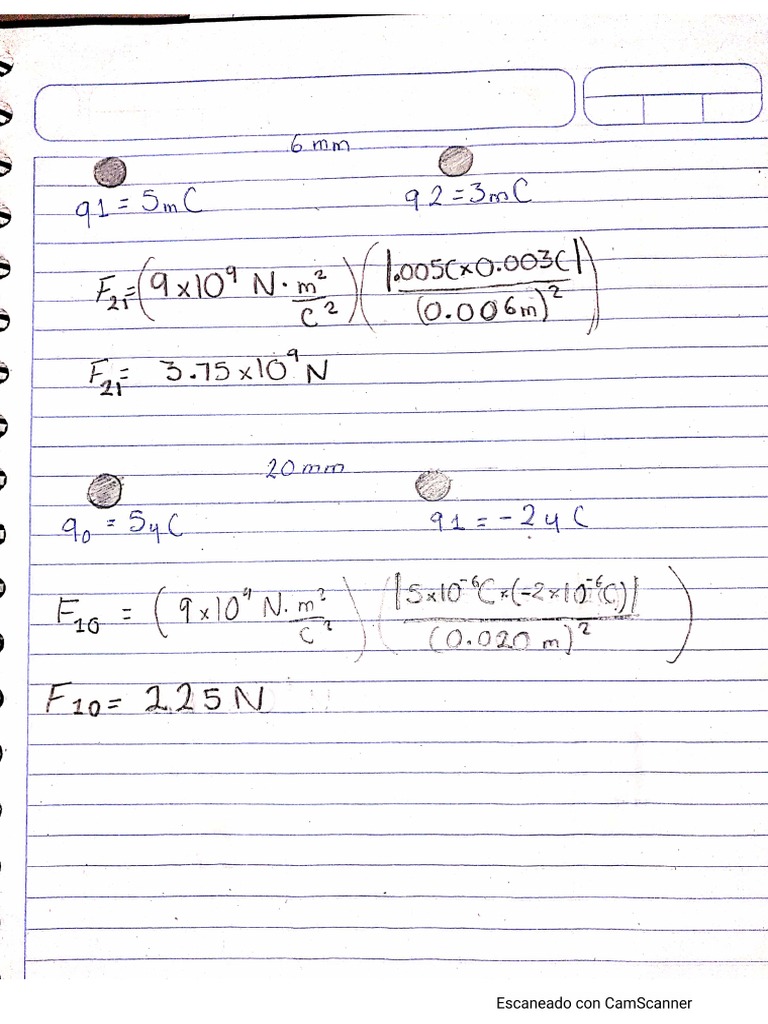 6 mm
q1 = 5mC q2 = 3mC
F21 = (9×10⁹ N·m²/C²) (|.005C×0.003C|/(0.006m)²)
F21 = 3.75×10⁹ N
20 mm
q0 = 5μC q1 = -2μC
F10 = (9×10⁹ N·m²/C²) (|5×10⁻⁶C×(-2×10⁻⁶C)|/(0.020 m)²)
F10 = 225 N
Escaneado con CamScanner